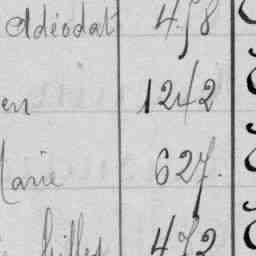 Adéodat 458
en 1242
Marie 627.
Gilles 472